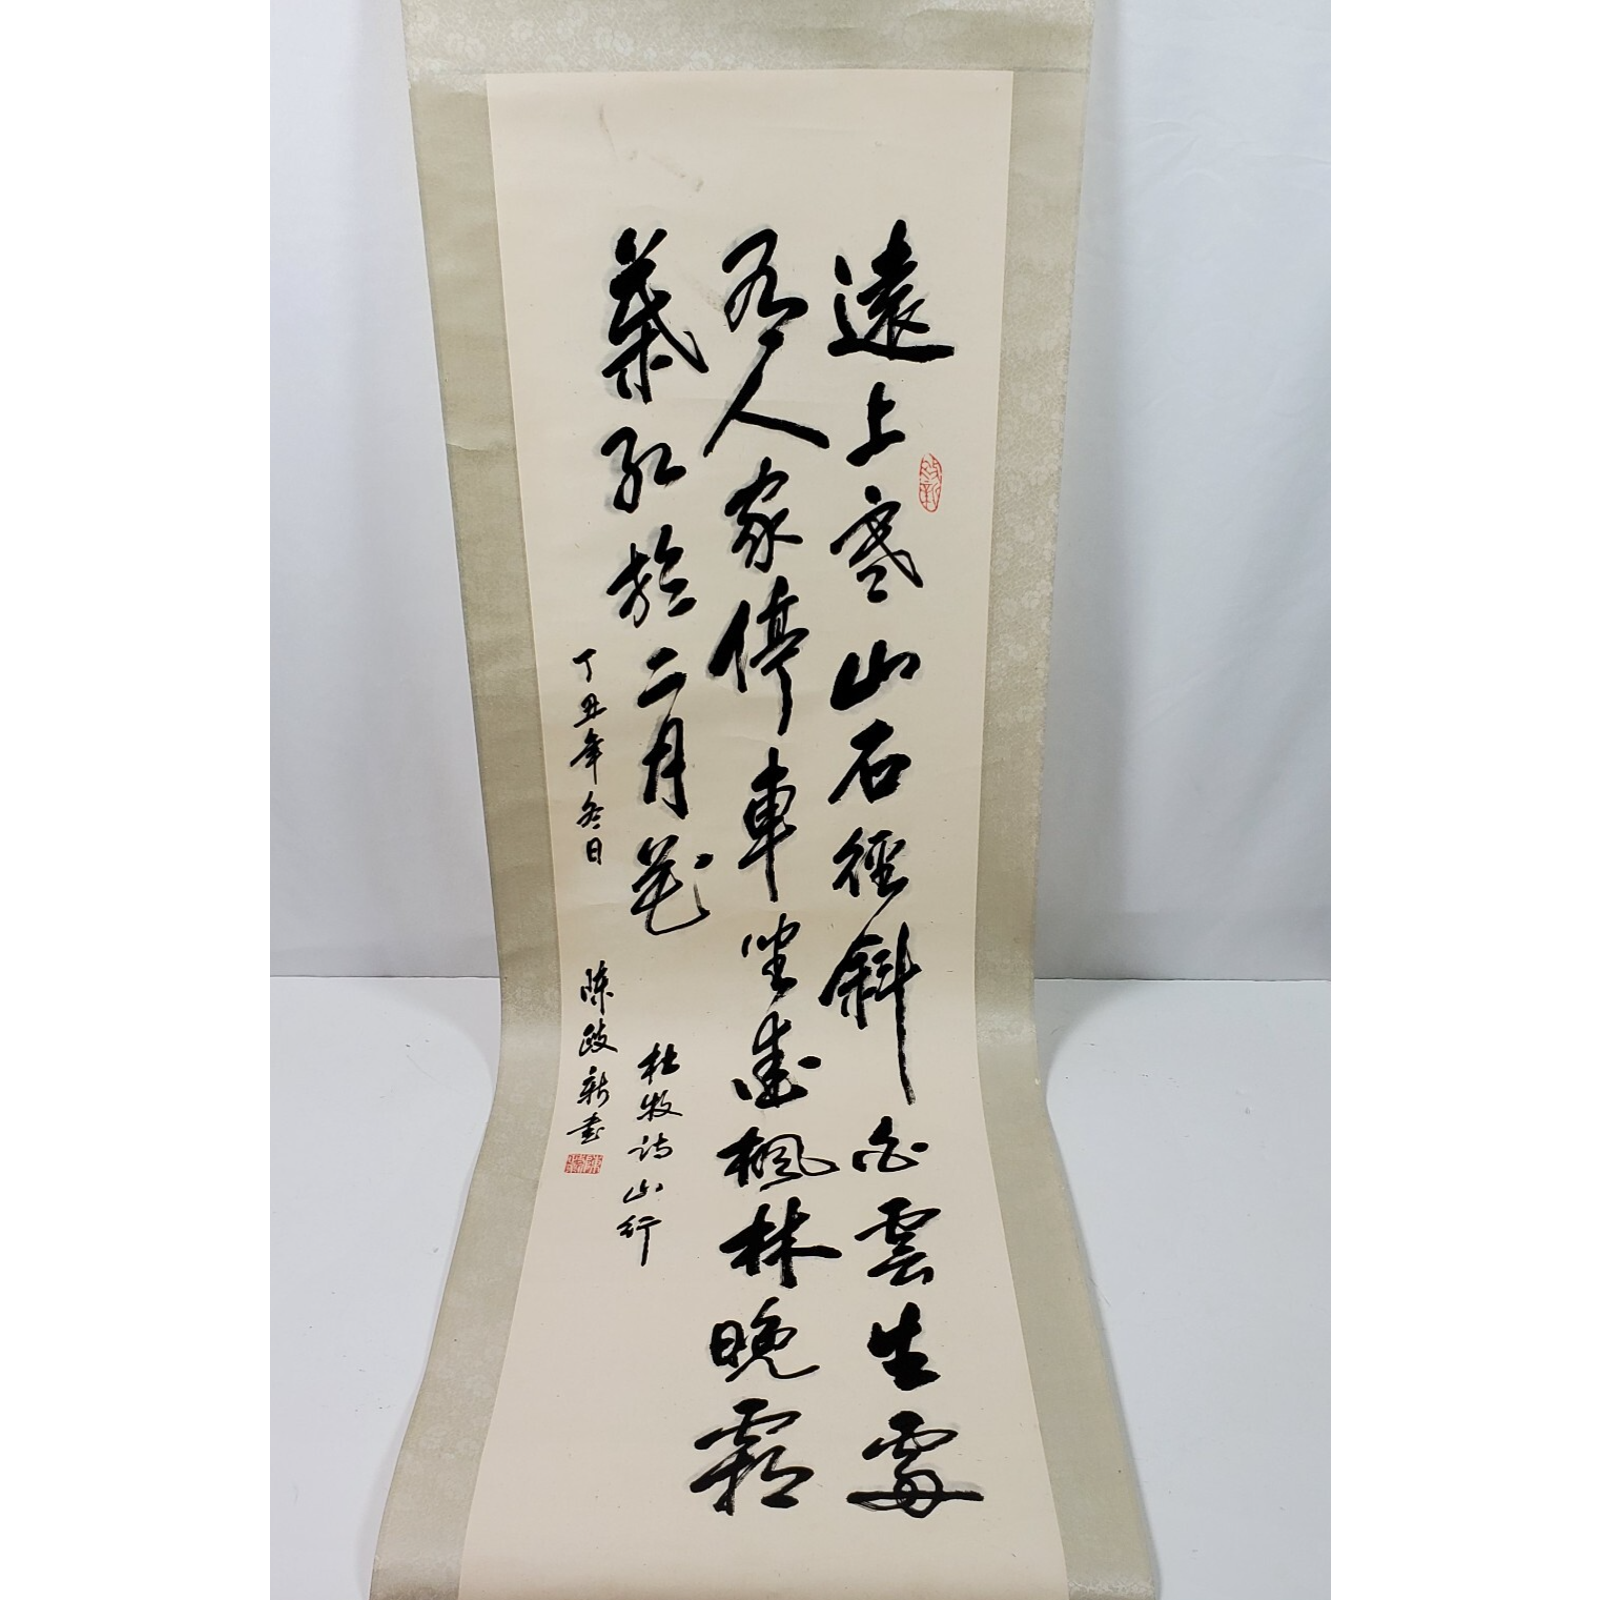 遠上寒山石徑斜白雲生處
有人家停車坐愛楓林晚霜
葉紅於二月花
杜牧诗山行
丁丑年冬日
陈啟新書